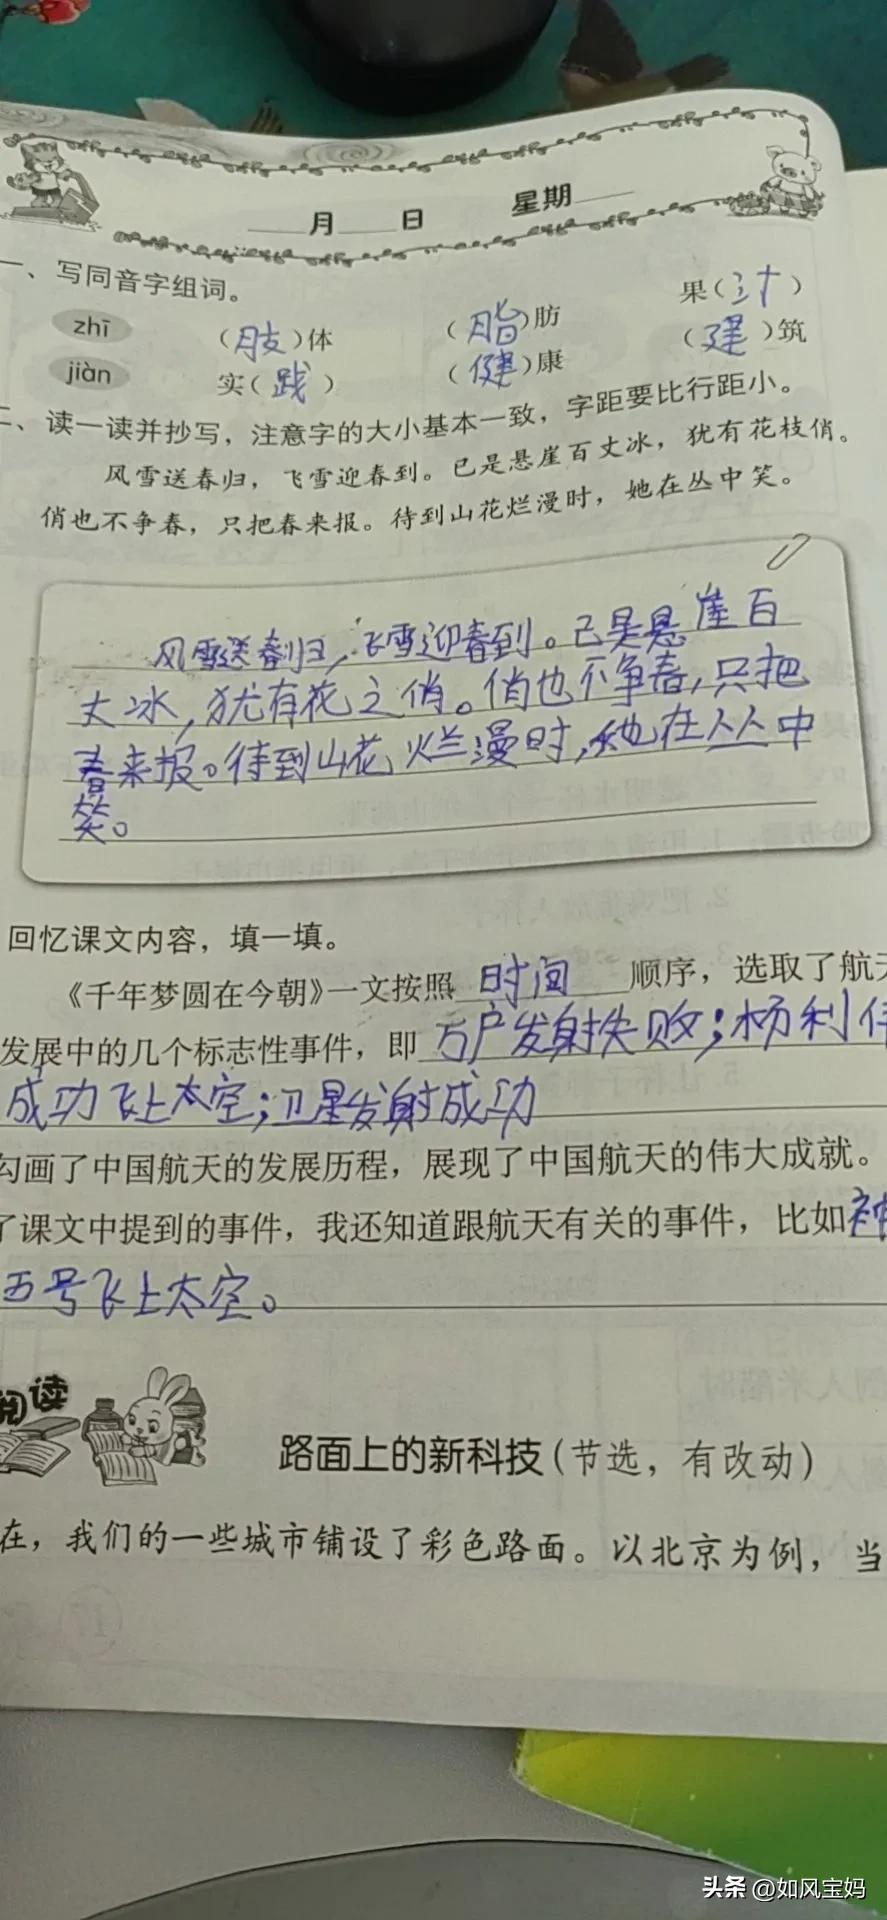 月 日 星期
一、写同音字组词。
zhī （肢）体 （脂）肪 果（汁）
jiàn 实（践） （健）康 （建）筑
二、读一读并抄写，注意字的大小基本一致，字距要比行距小。
风雪送春归，飞雪迎春到。已是悬崖百丈冰，犹有花枝俏。
俏也不争春，只把春来报。待到山花烂漫时，她在丛中笑。
风雪送春归，飞雪迎春到。己是悬崖百
丈冰，犹有花之俏。俏也不争春，只把
春来报。待到山花烂漫时，她在丛中
笑。
回忆课文内容，填一填。
《千年梦圆在今朝》一文按照时间顺序，选取了航天
发展中的几个标志性事件，即万户发射失败；杨利伟
成功飞上太空；卫星发射成功
勾画了中国航天的发展历程，展现了中国航天的伟大成就。
了课文中提到的事件，我还知道跟航天有关的事件，比如神
五号飞上太空。
阅读
路面上的新科技（节选，有改动）
在，我们的一些城市铺设了彩色路面。以北京为例，当
头条 @如风宝妈